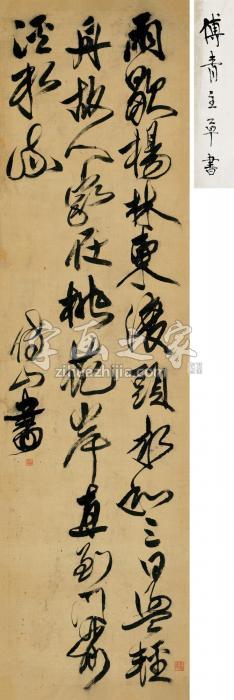 傅青主草書
雨歇楊林東渡頭永和三日盪輕
舟故人家在桃花岸直到門前
溪水流
傅山書
字画之家
zihuazhijia.com